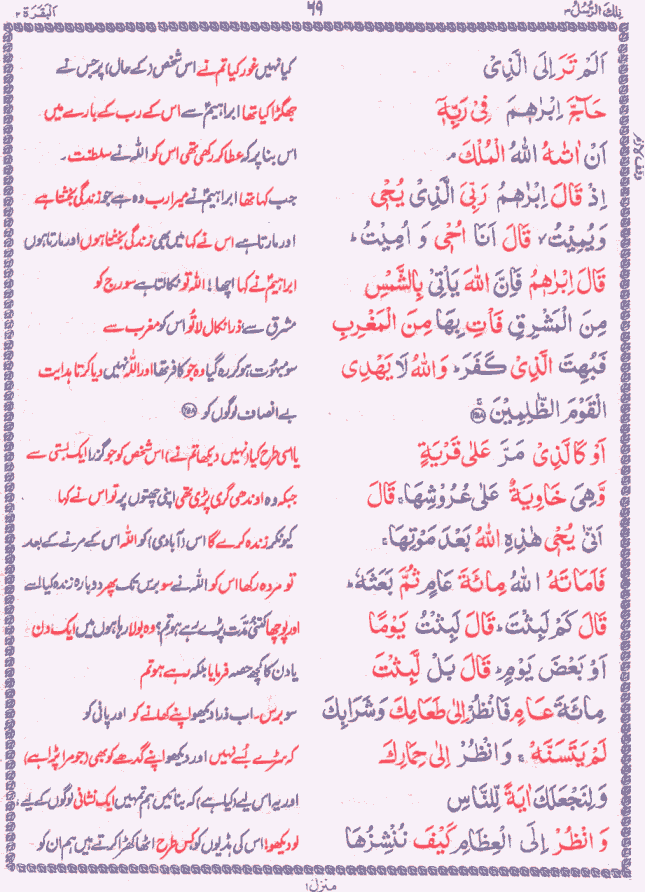 تِلْكَ الرُّسُلُ ۳
۶۹
اَلْبَقَرَة ۲
اَلَمْ تَرَ اِلَى الَّذِىْ
کیا نہیں غور کیا تم نے اس شخص (کے حال) پر جس نے
حَآجَّ اِبْرٰهٖمَ فِىْ رَبِّهٖۤ
جھگڑا کیا تھا ابراہیمؑ سے اس کے رب کے بارے میں
اَنْ اٰتٰىهُ اللّٰهُ الْمُلْكَ ۘ
اس بنا پر کہ عطا کر رکھی تھی اس کو اللہ نے سلطنت۔
اِذْ قَالَ اِبْرٰهٖمُ رَبِّىَ الَّذِىْ يُحْىٖ
جب کہا تھا ابراہیمؑ نے میرا رب وہ ہے جو زندگی بخشتا ہے
وَيُمِيْتُ ۙ قَالَ اَنَا اُحْىٖ وَ اُمِيْتُ ؕ
اور مارتا ہے اس نے کہا میں بھی زندگی بخشتا ہوں اور مارتا ہوں
قَالَ اِبْرٰهٖمُ فَاِنَّ اللّٰهَ يَاْتِىْ بِالشَّمْسِ
ابراہیمؑ نے کہا اچھا! اللہ تو نکالتا ہے سورج کو
مِنَ الْمَشْرِقِ فَاْتِ بِهَا مِنَ الْمَغْرِبِ
مشرق سے، ذرا نکال لا تُو اس کو مغرب سے
فَبُهِتَ الَّذِىْ كَفَرَ ؕ وَاللّٰهُ لَا يَهْدِى
سو مبہُوت ہو کر رہ گیا وہ جو کافر تھا اور اللہ نہیں دیا کرتا ہدایت
الْقَوْمَ الظّٰلِمِيْنَ ۚ ﴿۲۵۸﴾
بے انصاف لوگوں کو ﴿۲۵۸﴾
اَوْ كَالَّذِىْ مَرَّ عَلٰى قَرْيَةٍ
یا اسی طرح کیا (نہیں دیکھا تم نے) اس شخص کو جو گزرا ایک بستی سے
وَّهِىَ خَاوِيَةٌ عَلٰى عُرُوْشِهَا ۚ قَالَ
جبکہ وہ اوندھی گری پڑی تھی اپنی چھتوں پر تو اس نے کہا
اَنّٰى يُحْىٖ هٰذِهِ اللّٰهُ بَعْدَ مَوْتِهَا ۚ
کیونکر زندہ کرے گا اس (آبادی) کو اللہ اس کے مرنے کے بعد
فَاَمَاتَهُ اللّٰهُ مِائَةَ عَامٍ ثُمَّ بَعَثَهٗ ؕ
تو مردہ رکھا اس کو اللہ نے سو برس تک پھر دوبارہ زندہ کیا اسے
قَالَ كَمْ لَبِثْتَ ؕ قَالَ لَبِثْتُ يَوْمًا
اور پوچھا کتنی مدّت پڑے رہے ہو تم؟ وہ بولا رہا ہوں میں ایک دن
اَوْ بَعْضَ يَوْمٍ ؕ قَالَ بَلْ لَّبِثْتَ
یا دن کا کچھ حصہ فرمایا بلکہ رہے ہو تم
مِائَةَ عَامٍ فَانْظُرْ اِلٰى طَعَامِكَ وَشَرَابِكَ
سو برس۔ اب ذرا دیکھو اپنے کھانے کو اور پانی کو
لَمْ يَتَسَنَّهْ ۚ وَانْظُرْ اِلٰى حِمَارِكَ
کہ سڑے بُسے نہیں اور دیکھو اپنے گدھے کو بھی (جو مرا پڑا ہے)
وَلِنَجْعَلَكَ اٰيَةً لِّلنَّاسِ
اور یہ اس لیے کیا ہے) کہ بنائیں ہم تمہیں ایک نشانی لوگوں کے لیے،
وَ انْظُرْ اِلَى الْعِظَامِ كَيْفَ نُنْشِزُهَا
لو دیکھو! اس کی ہڈیوں کو کس طرح اٹھا کھڑا کرتے ہیں ہم ان کو
منزل ۱